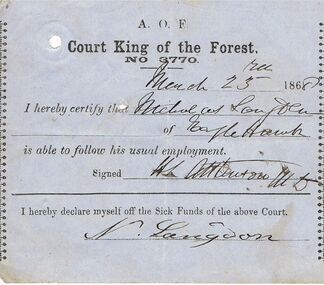 A. O. F.
Court King of the Forest.
NO 3770.
March 23rd 1868
I hereby certify that Nicholas Langdon
of Eaglehawk
is able to follow his usual employment.
Signed Wm Atkinson M D
I hereby declare myself off the Sick Funds of the above Court.
N. Langdon